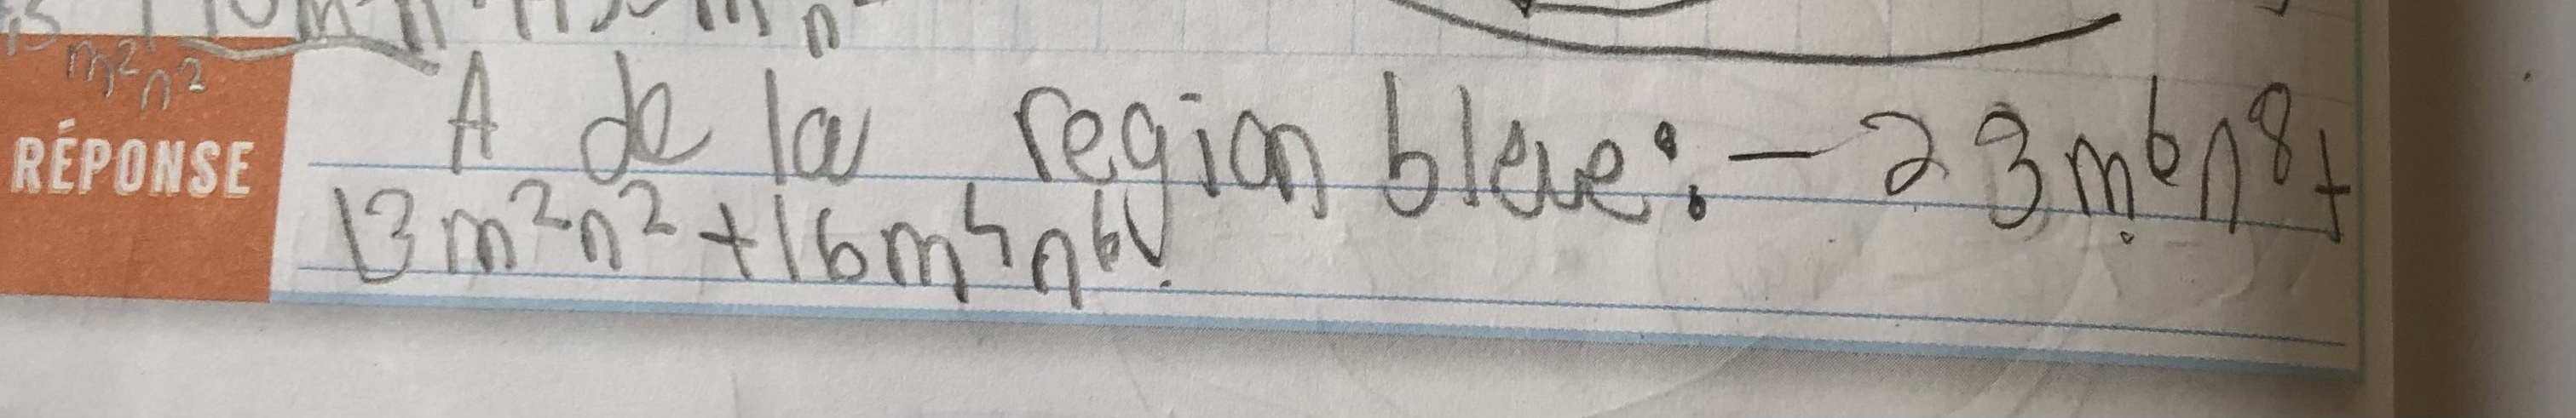 m²n²
RÉPONSE
A de la region bleue : - 23m⁶n⁸ +
13m²n² + 16m⁴n⁶